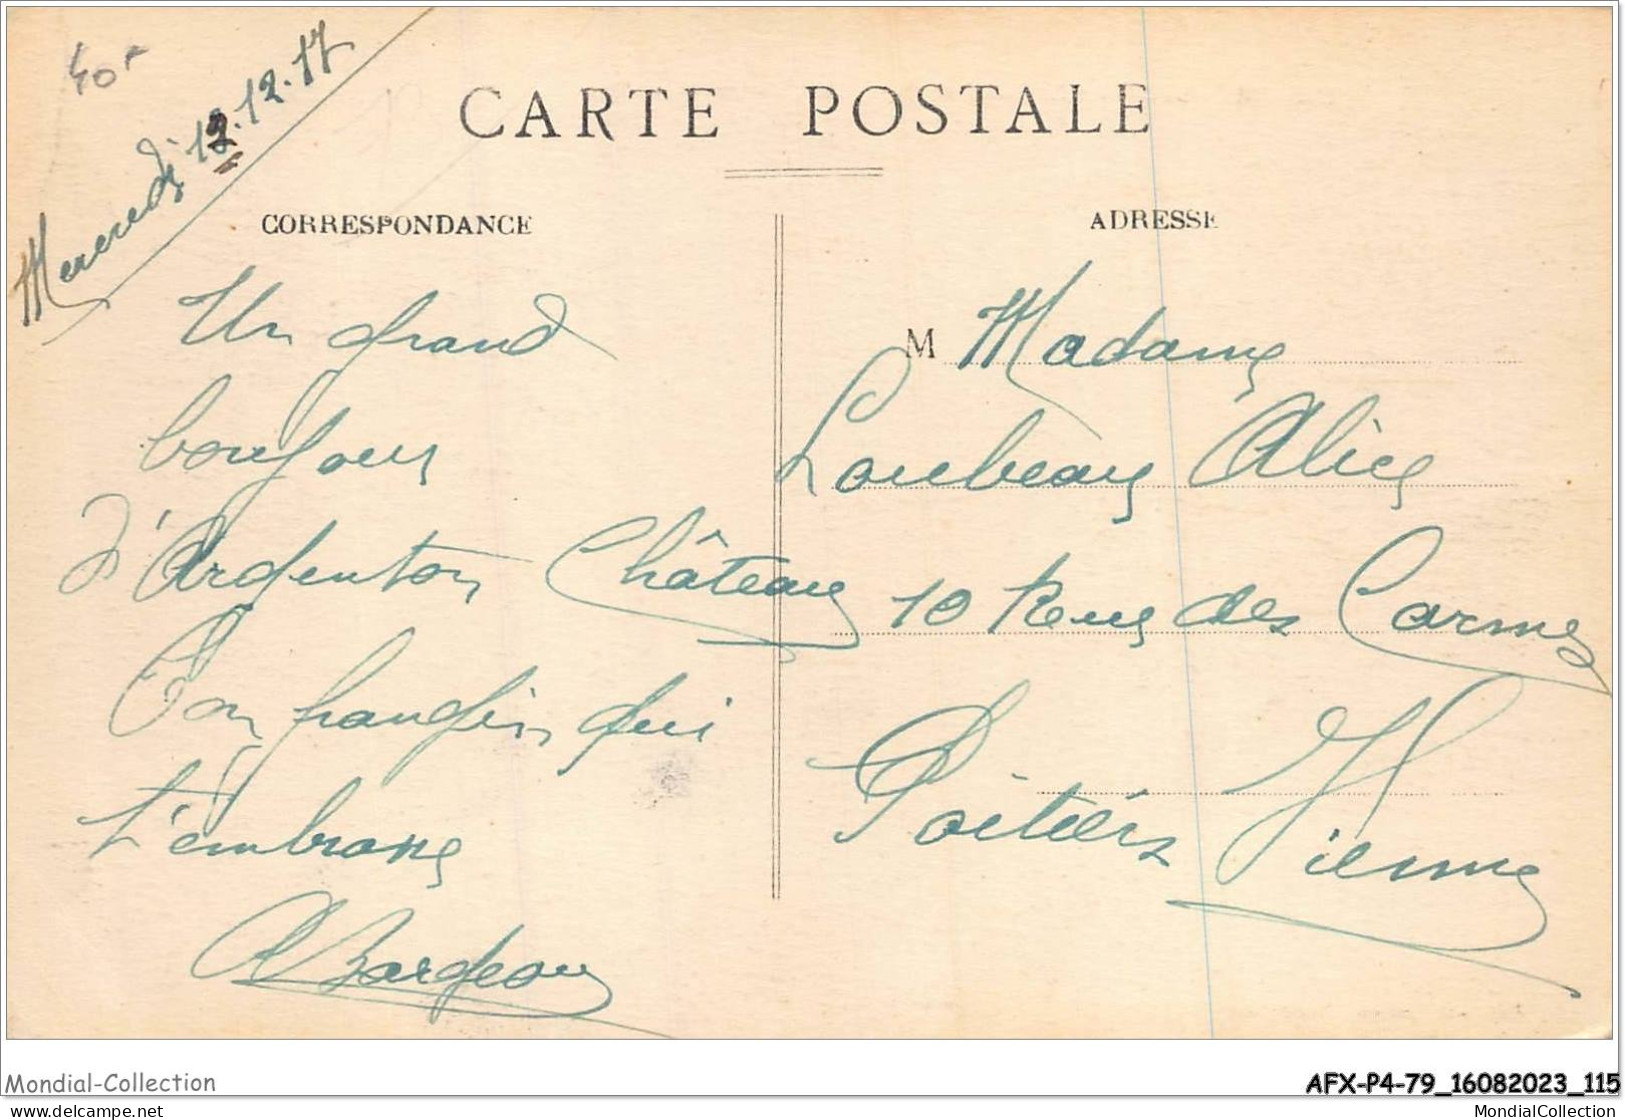 40 F
Mercredi 12.12.17
CARTE POSTALE
CORRESPONDANCE
ADRESSE
Un grand
bonjour
d'Argenton Château
Ton frangin qui
t'embrasse
M Madame
Loubeau Alice
10 Rue des Carmes
Poitiers Vienne
Mondial-Collection
AFX-P4-79_16082023_115
www.delcampe.net
MondialCollection